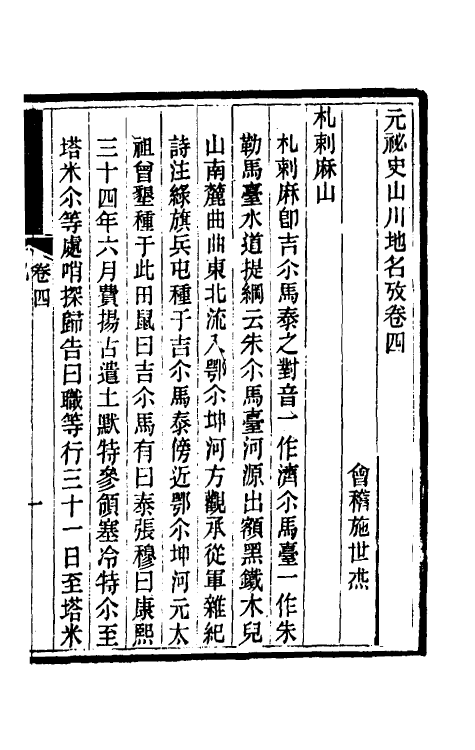 元祕史山川地名攷卷四
會稽施世杰
札剌麻山
札剌麻卽吉尒馬泰之對音一作濟尒馬臺一作朱
勒馬臺水道提綱云朱尒馬臺河源出額黑鐵木兒
山南麓曲曲東北流入鄂尒坤河方觀承從軍雜紀
詩注綠旗兵屯種于吉尒馬泰傍近鄂尒坤河元太
祖曾墾種于此田鼠曰吉尒馬有曰泰張穆曰康熙
三十四年六月費揚古遣土默特參領塞冷特尒至
塔米尒等處哨探歸告曰職等行三十一日至塔米
卷四
一